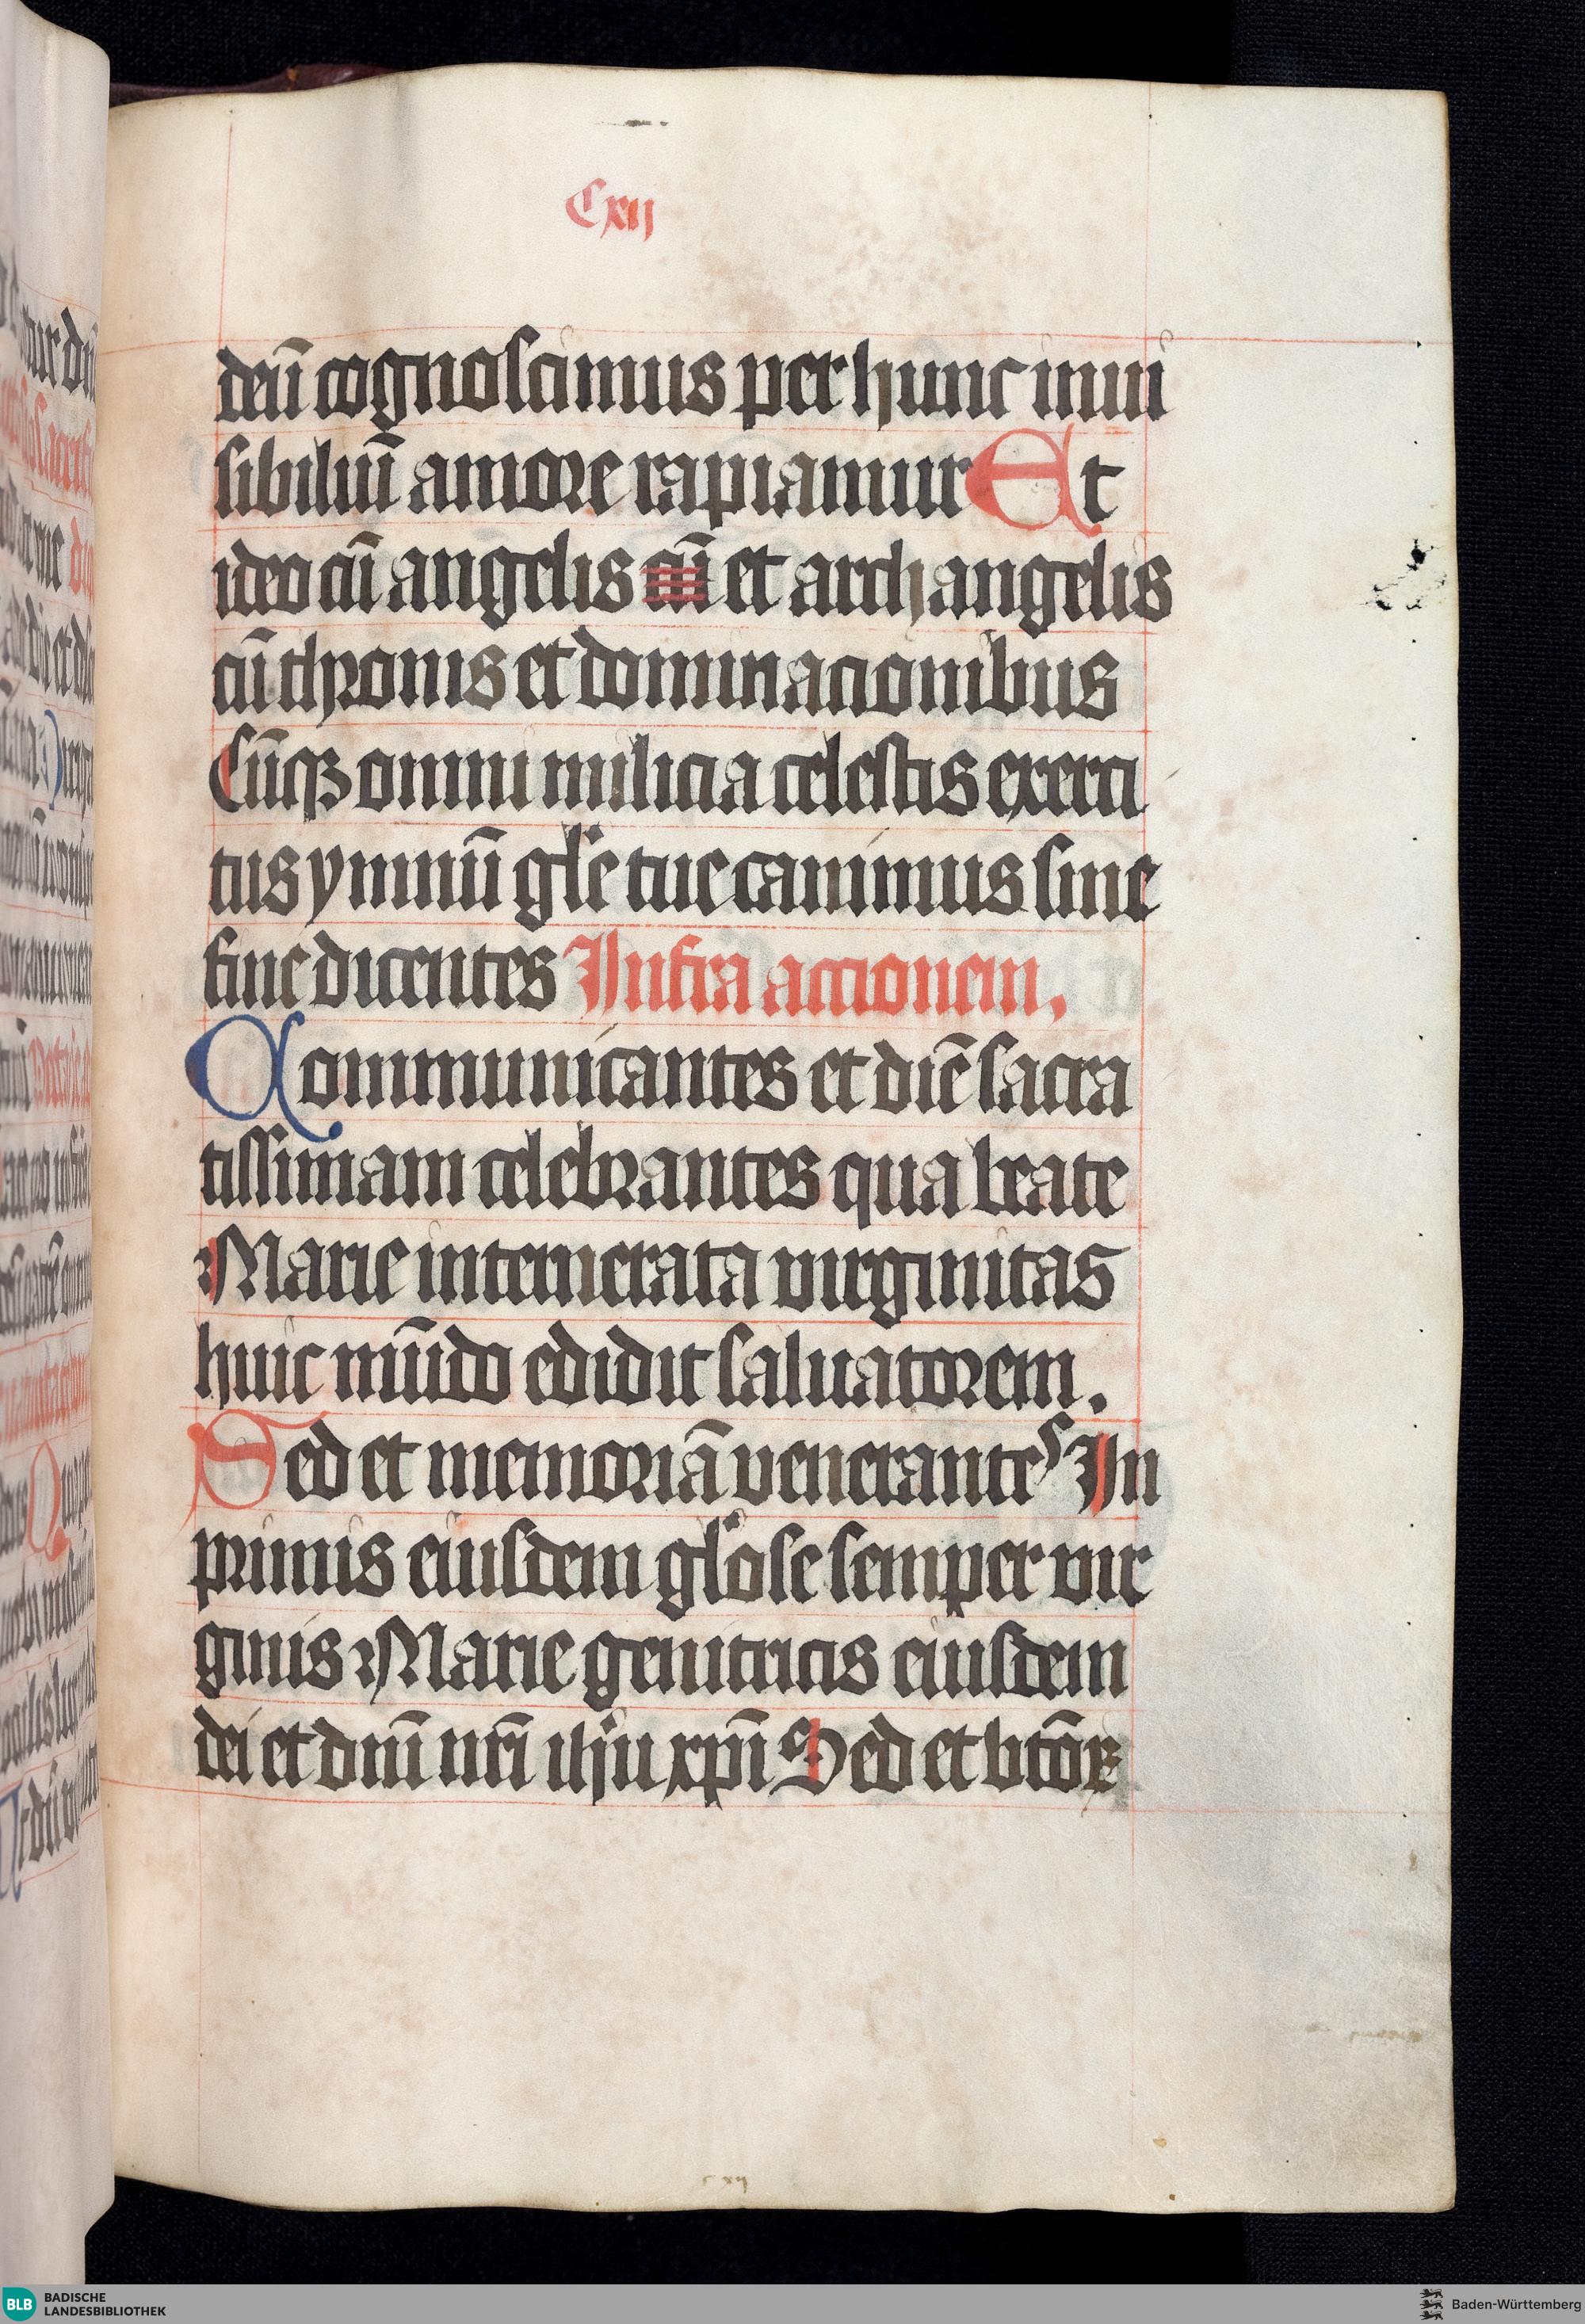 Cxij
deū cognoscimus per hunc inui
sibiliū amore rapiamur Et
ideo cū angelis cū et archangelis
cū thronis et dominacionibus
Cūqꝫ omni milicia celestis exerci
tus ymnū gl'e tue canimus sine
fine dicentes Infra accionem.
Communicantes et diē sacra
tissimam celebrantes qua beate
Marie intemerata virginitas
huic mūdo edidit saluatorem.
Sed et memoriā venerantes In
primis eiusdem gl'ose semper vir
ginis Marie genitricis eiusdem
dei et dnī nrī ihu xpī Sed et btōꝝ
BLB BADISCHE
LANDESBIBLIOTHEK
Baden-Württemberg